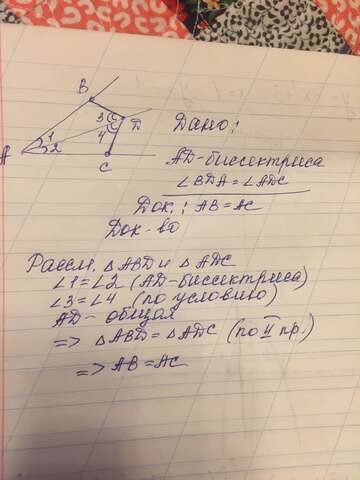 B
3
D
4
A
1
2
C
Дано:
AD-биссектриса
∠BDA=∠ADC
Док.: AB=AC
Док-во
Рассм. △ABD и △ADC
∠1=∠2 (AD-биссектриса)
∠3=∠4 (по условию)
AD-общая
=> △ABD=△ADC (по II пр.)
=> AB=AC